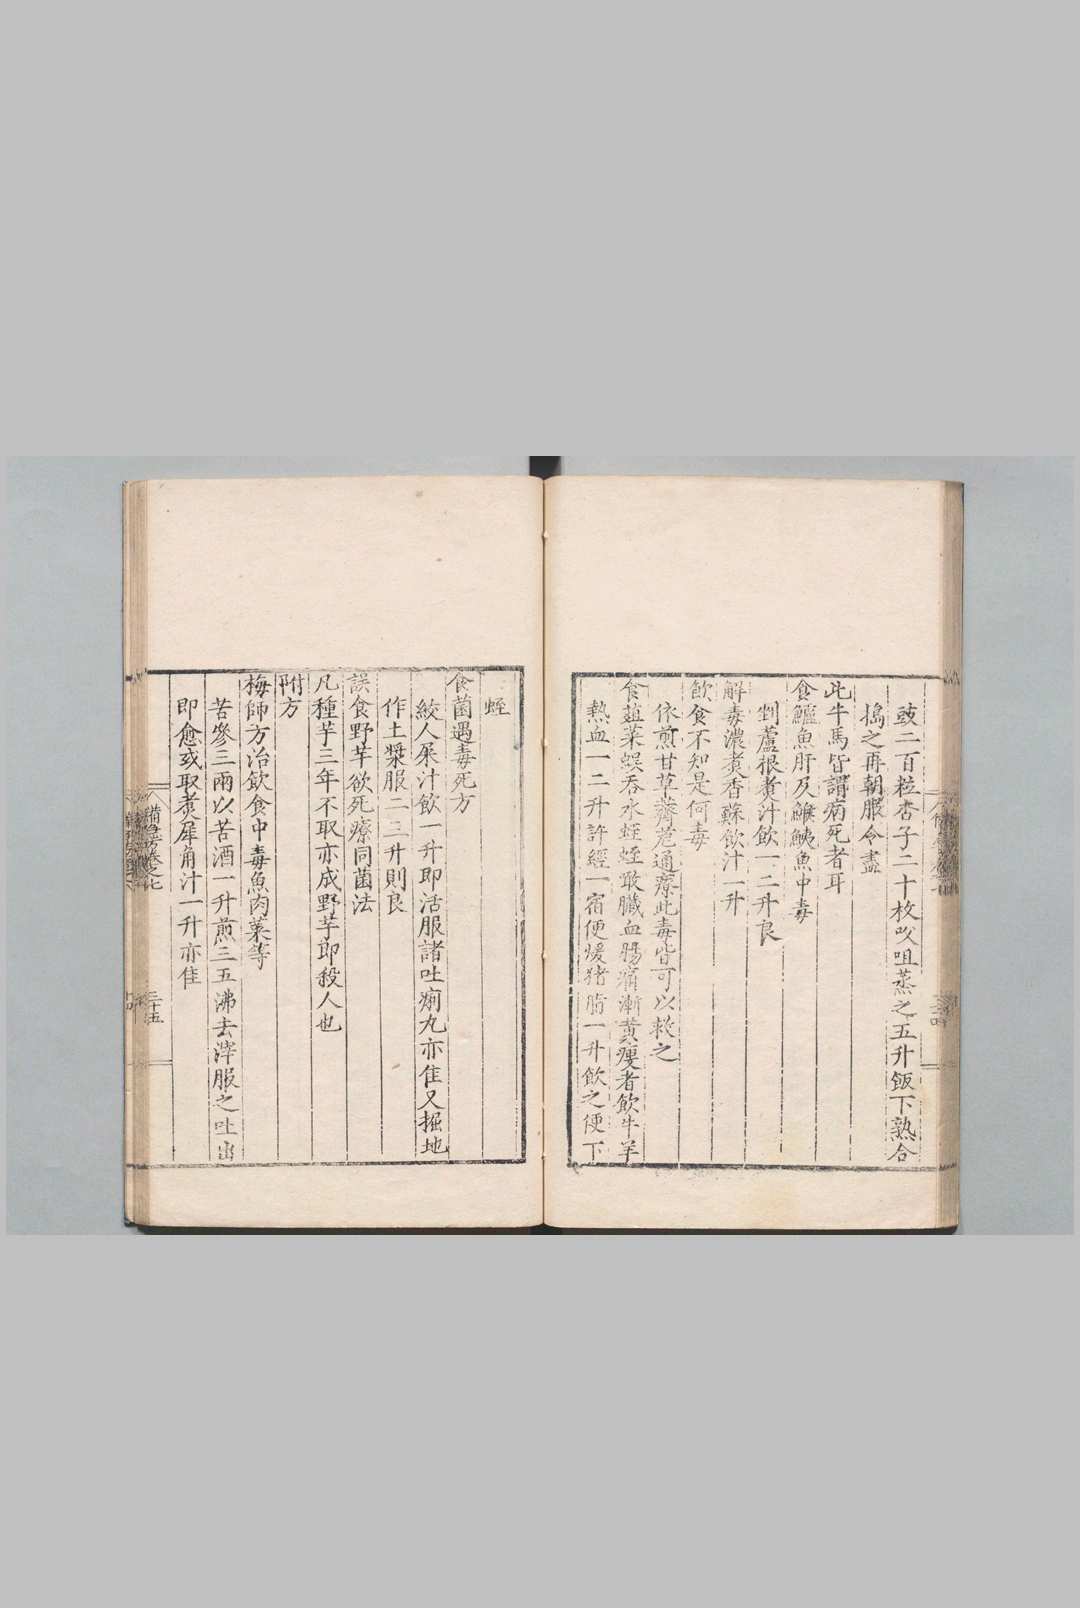 豉二百粒杏子二十枚㕮咀蒸之五升飯下熟合
搗之再朝服令盡
此牛馬皆謂病死者耳
食鱸魚肝及鯸鮧魚中毒
剉蘆根煮汁飲一二升良
解毒濃煮香蘇飲汁一升
飲食不知是何毒
依煎甘草薺苨通療此毒皆可以救之
食薀菜誤吞水蛭蛭敢臟血腸痛漸黄瘦者飲牛羊
熱血一二升許經一宿便煖猪脂一升飲之便下
蛭
食菌遇毒死方
絞人屎汁飲一升即活服諸吐痢丸亦佳又掘地
作土漿服二三升則良
誤食野芋欲死療同菌法
凡種芋三年不取亦成野芋即殺人也
附方
梅師方治飲食中毒魚肉菜等
苦參三兩以苦酒一升煎三五沸去滓服之吐出
即愈或取煮犀角汁一升亦佳
備急方卷之七
三十五